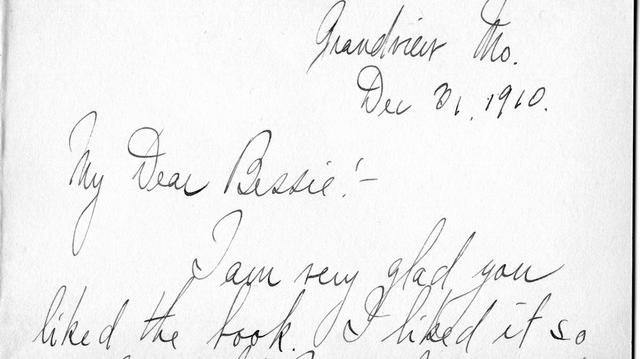 Grandview Mo.
Dec 31, 1910.
My Dear Bessie!-
I am very glad you
liked the book. I liked it so